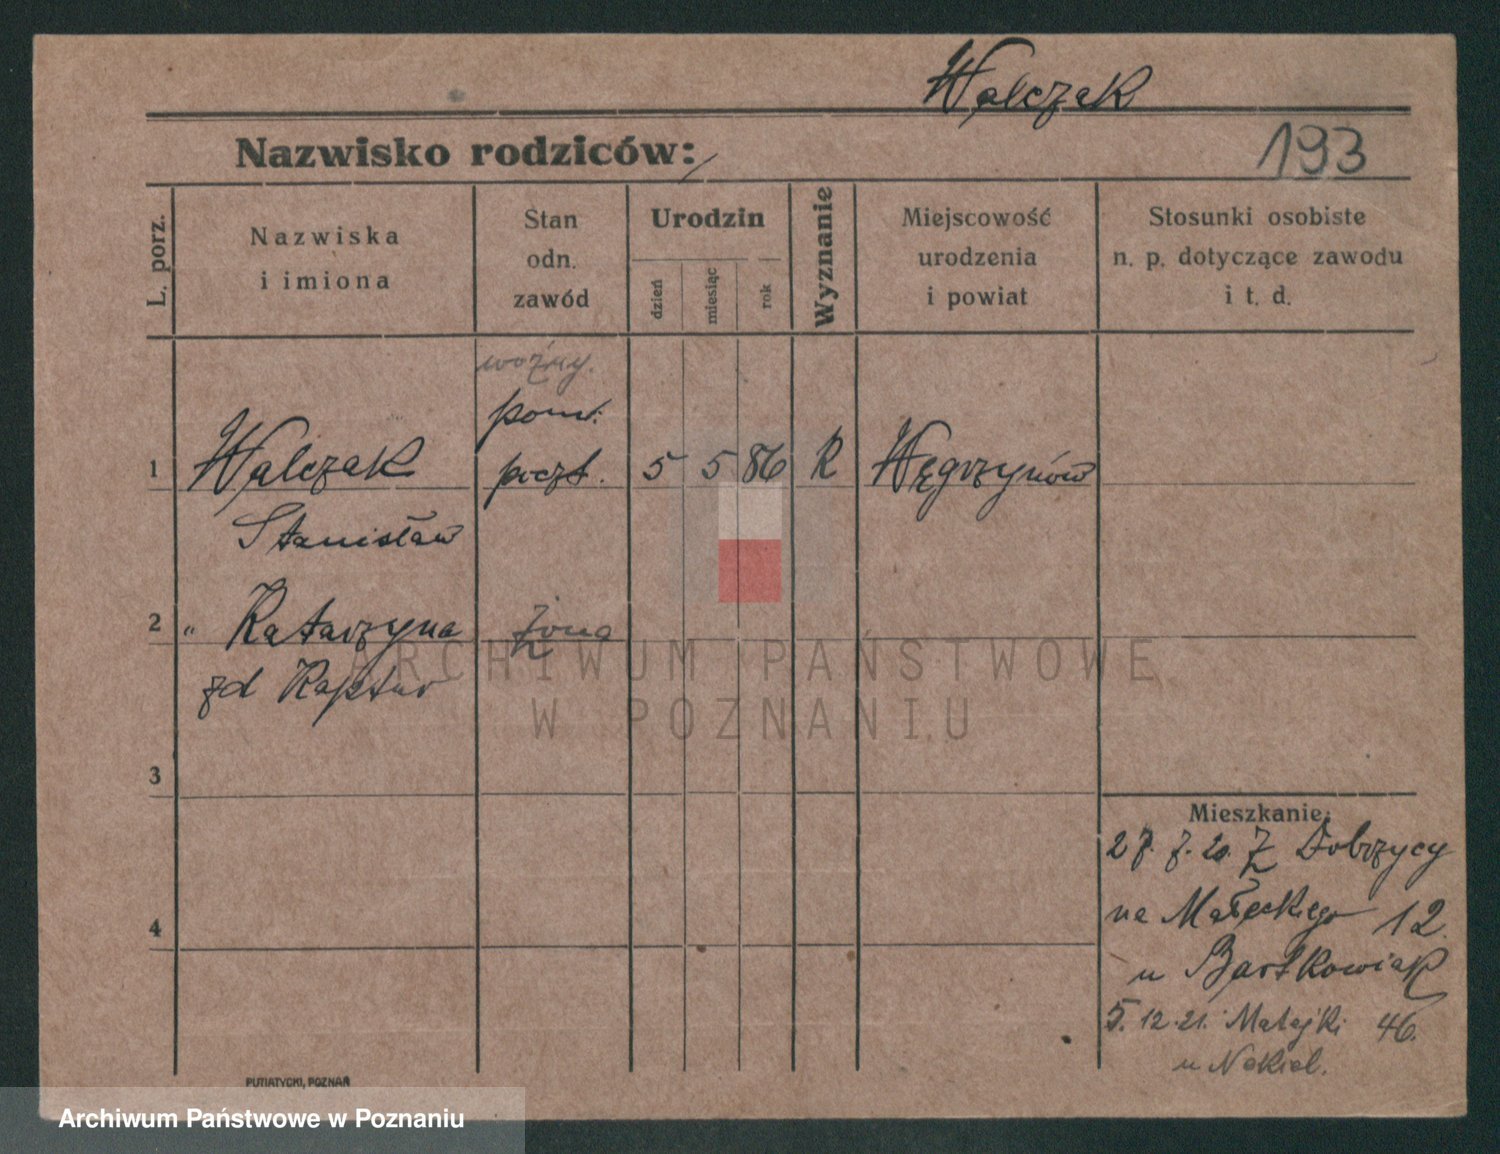 Walczak
193
Nazwisko rodziców:
L. porz.
Nazwiska
i imiona
Stan
odn.
zawód
Urodzin
dzień
miesiąc
rok
Wyznanie
Miejscowość
urodzenia
i powiat
Stosunki osobiste
n. p. dotyczące zawodu
i t. d.
woźny.
pom.
1 Walczak poczt. 5 5 86 R Węgrzynów
Stanisław
2 " Katarzyna żona
zd Kaptur
3
4
Mieszkanie:
27. 7. 20. Z Dobrzycy
na Małeckiego 12.
u Bartkowiak
5. 12. 21. Matejki 46.
u Nokiel.
PUTIATYCKI, POZNAŃ
ARCHIWUM PAŃSTWOWE
W POZNANIU
Archiwum Państwowe w Poznaniu